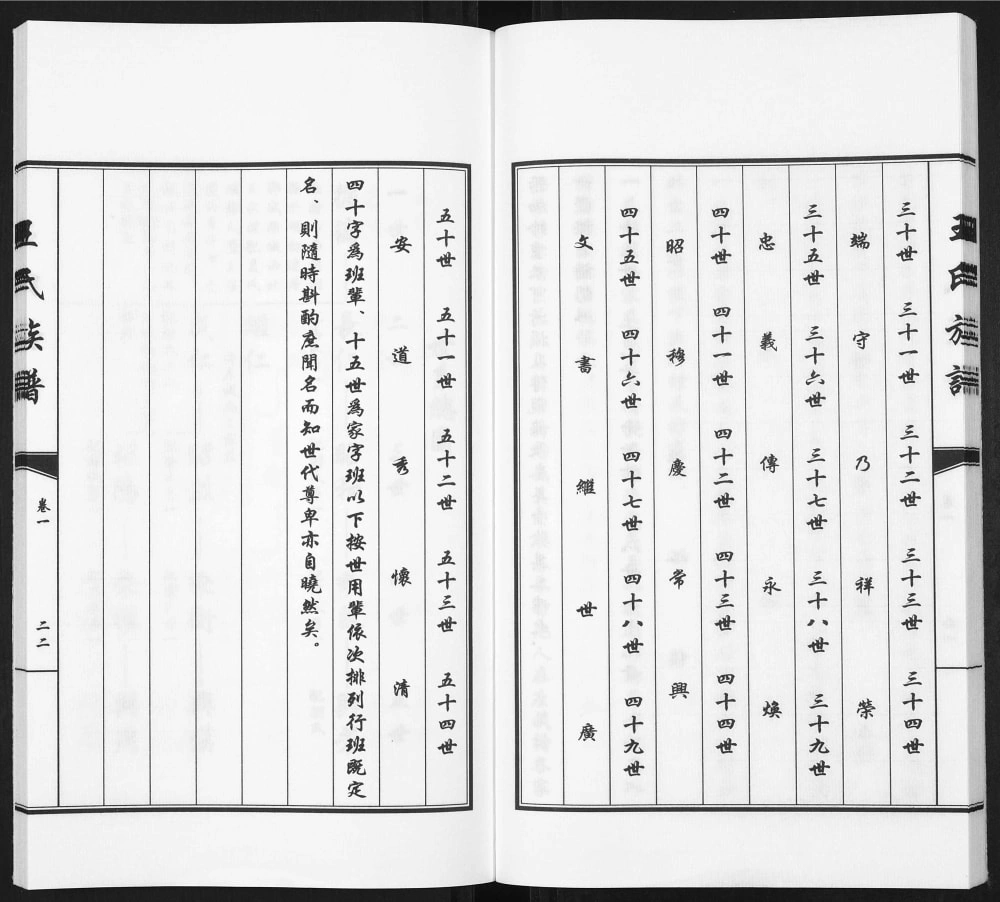 王氏族譜
三十世 三十一世 三十二世 三十三世 三十四世
端 守 乃 祥 榮
三十五世 三十六世 三十七世 三十八世 三十九世
忠 義 傳 永 煥
四十世 四十一世 四十二世 四十三世 四十四世
昭 穆 慶 常 興
四十五世 四十六世 四十七世 四十八世 四十九世
文 書 繼 世 廣
五十世 五十一世 五十二世 五十三世 五十四世
安 道 秀 懷 清
四十字爲班輩、十五世爲家字班以下按世用輩依次排列行班既定
名、則隨時斟酌庶聞名而知世代尊卑亦自曉然矣。
王氏族譜
卷一
二二